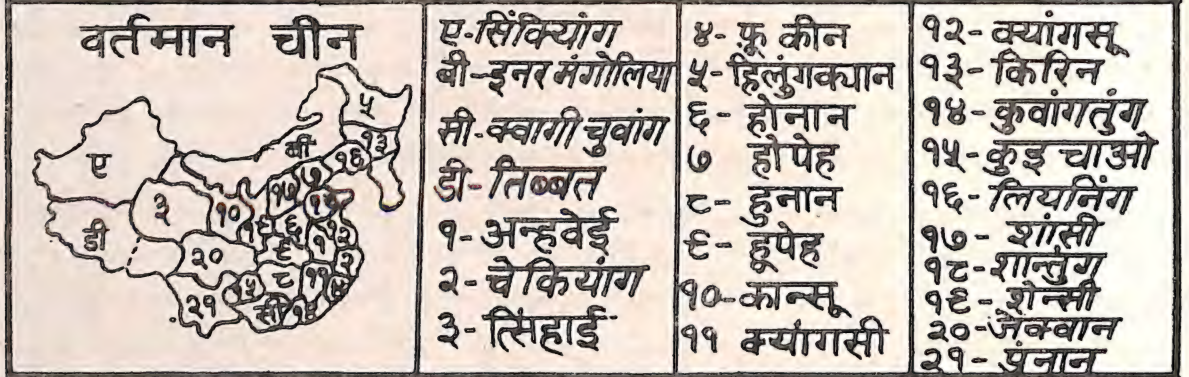 वर्तमान चीन
ए
बी
५
१३
१६
७
१७
१८
३
१०
१९
६
१२
डी
२०
९
१
२
८
११
४
१५
२१
सी
१४
ए-सिंकियांग
बी-इनर मंगोलिया
सी-क्वागी चुवांग
डी-तिब्बत
१-अन्हवेई
२-चेकियांग
३-त्सिंहाई
४-फ़ू कीन
५-हिलुंगक्यान
६-होनान
७ हौपेह
८-हुनान
९-हूपेह
१०-कान्सू
११ क्यांगसी
१२-क्यांगसू
१३-किरिन
१४-कुवांगतुंग
१५-कुइ चाओ
१६-लियनिंग
१७-शांसी
१८-शान्तुंग
१९-शेन्सी
२०-जैक्वान
२१-प्रंनान